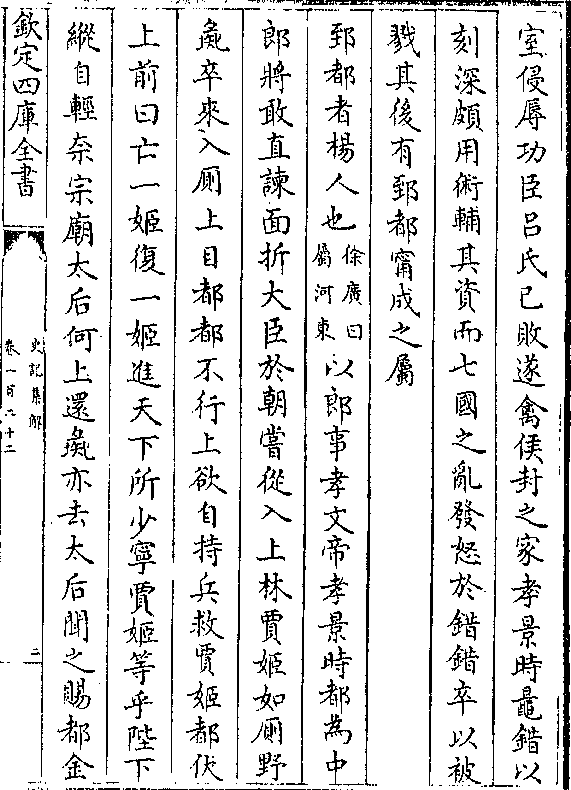 室侵辱功臣吕氏已敗遂禽侯封之家孝景時鼂錯以
刻深頗用術輔其資而七國之亂發怒於錯錯卒以被
戮其後有郅都甯成之屬
郅都者楊人也徐廣曰屬河東以郎事孝文帝孝景時都為中
郎將敢直諫面折大臣於朝嘗從入上林賈姬如厠野
彘卒來入厠上目都都不行上欲自持兵救賈姬都伏
上前曰亡一姬復一姬進天下所少寧賈姬等乎陛下
縱自輕奈宗廟太后何上還彘亦去太后聞之賜都金
欽定四庫全書
史記集解
卷一百二十二
二